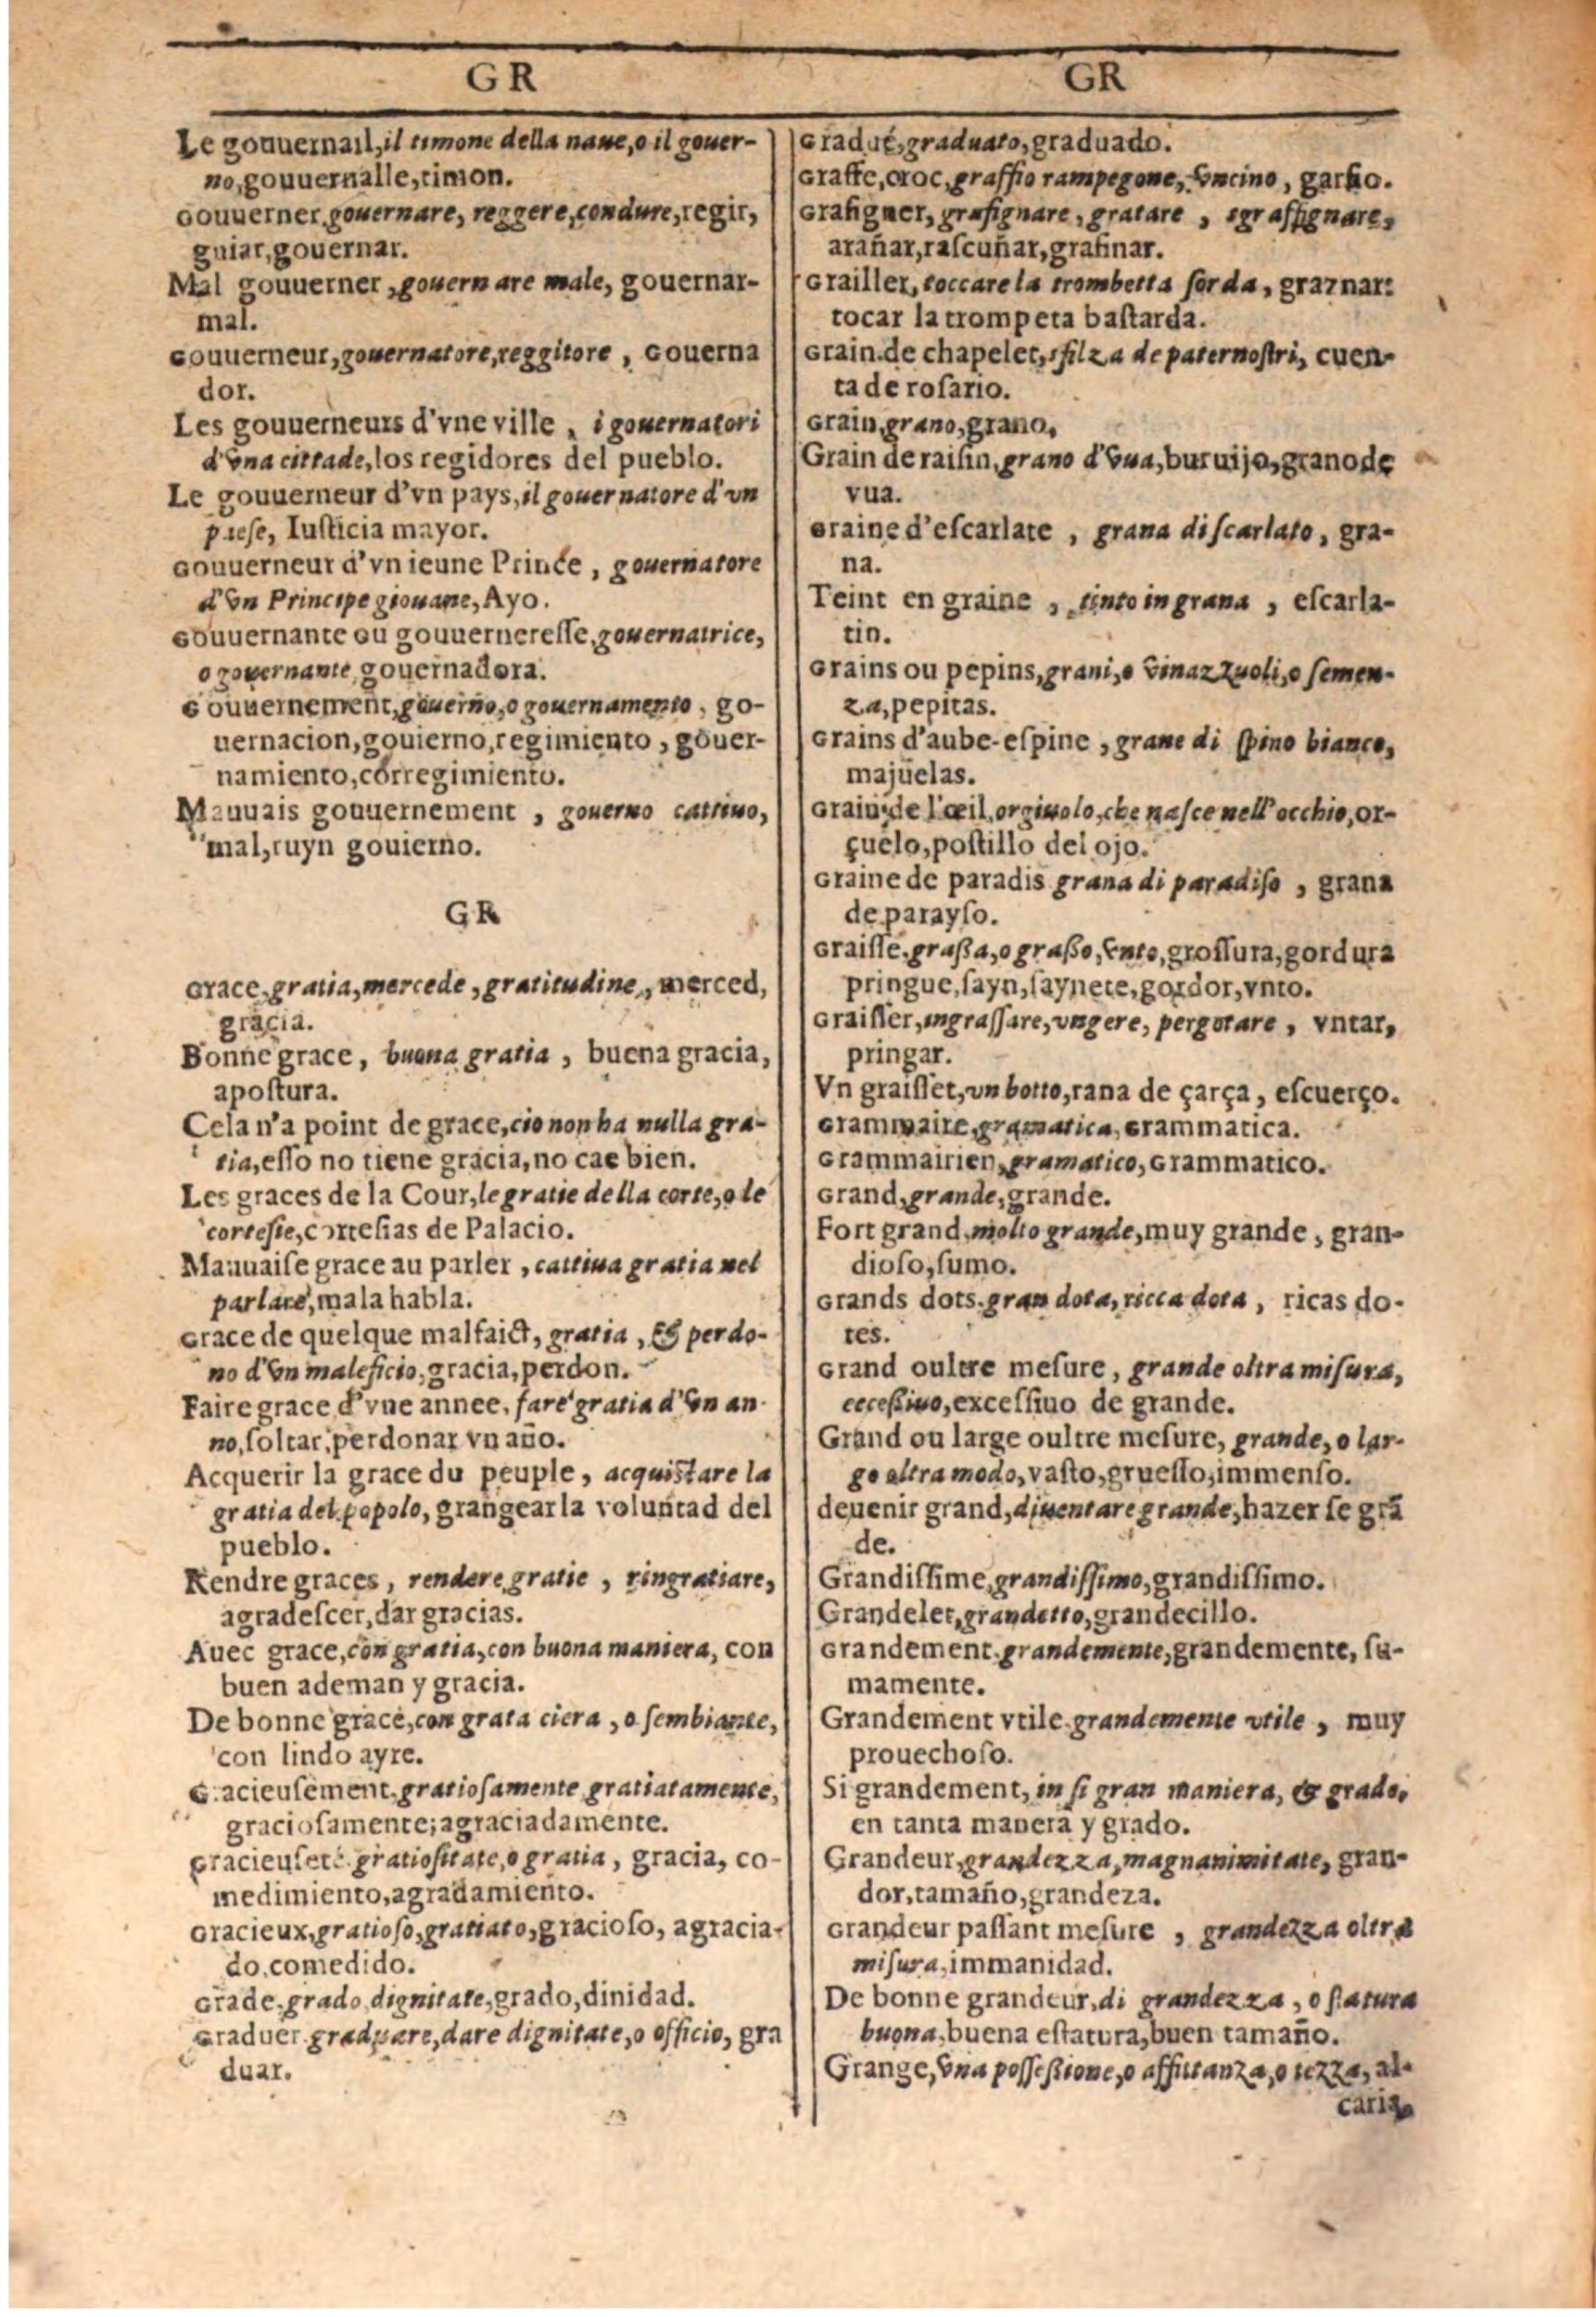 GR
Le gouuernail, il timone della naue, o il gouer-
no, gouuernalle, timon.
Gouuerner, gouernare, reggere, condure, regir,
guiar, gouernar.
Mal gouuerner, gouernare male, gouernar-
mal.
Gouuerneur, gouernatore, reggitore, Gouerna
dor.
Les gouuerneurs d'vne ville, i gouernatori
d'vna cittade, los regidores del pueblo.
Le gouuerneur d'vn pays, il gouernatore d'vn
paese, Iusticia mayor.
Gouuerneur d'vn ieune Prince, gouernatore
d'vn Principe giouane, Ayo.
Gouuernante ou gouuerneresse, gouernatrice,
o gouernante, gouernadora.
Gouuernement, gouerno, o gouernamento, go-
uernacion, gouierno, regimiento, gouer-
namiento, corregimiento.
Mauuais gouuernement, gouerno cattiuo,
mal, ruyn gouierno.
GR
Grace, gratia, mercede, gratitudine, merced,
gracia.
Bonne grace, buona gratia, buena gracia,
apostura.
Cela n'a point de grace, cio non ha nulla gra-
tia, esso no tiene gracia, no cae bien.
Les graces de la Cour, le gratie della corte, o le
cortesie, cortesias de Palacio.
Mauuaise grace au parler, cattiua gratia nel
parlare, mala habla.
Grace de quelque malfaict, gratia, & perdo-
no d'vn maleficio, gracia, perdon.
Faire grace d'vne annee, fare gratia d'vn an-
no, soltar, perdonar vn año.
Acquerir la grace du peuple, acquistare la
gratia del popolo, grangear la voluntad del
pueblo.
Rendre graces, rendere gratie, ringratiare,
agradescer, dar gracias.
Auec grace, con gratia, con buona maniera, con
buen ademan y gracia.
De bonne grace, con grata ciera, o sembiante,
con lindo ayre.
G acieusement, gratiosamente gratiatamente,
graciosamente; agraciadamente.
Gracieuseté gratiositate, o gratia, gracia, co-
medimiento, agradamiento.
Gracieux, gratioso, gratiato, gracioso, agracia-
do, comedido.
Grade, grado, dignitate, grado, dinidad.
Graduer, graduare, dare dignitate, o officio, gra
duar.
GR
Gradué, graduato, graduado.
Graffe, croc, graffio rampegone, vncino, garfio.
Grafigner, grafignare, gratare, sgraffignare,
arañar, rascuñar, grafinar.
Grailler, toccare la trombetta sorda, graznar:
tocar la trompeta bastarda.
Grain de chapelet, sfilza de paternostri, cuen-
ta de rosario.
Grain, grano, grano.
Grain de raisin, grano d'vua, buruijo, grano de
vua.
Graine d'escarlate, grana di scarlato, gra-
na.
Teint en graine, tinto in grana, escarla-
tin.
Grains ou pepins, grani, o vinazzuoli, o semen-
za, pepitas.
Grains d'aube-espine, grane di spino bianco,
majuelas.
Grain de l'œil, orgiuolo, che nasce nell'occhio, or-
çuelo, postillo del ojo.
Graine de paradis grana di paradiso, grana
de parayso.
Graisse, grassa, o grasso, vnto, grossura, gordura
pringue, sayn, saynete, gordor, vnto.
Graisser, ingrassare, vngere, pergotare, vntar,
pringar.
Vn graisset, vn botto, rana de çarça, escuerço.
Grammaire, gramatica, Grammatica.
Grammairien, gramatico, Grammatico.
Grand, grande, grande.
Fort grand, molto grande, muy grande, gran-
dioso, sumo.
Grands dots, gran dota, ricca dota, ricas do-
tes.
Grand oultre mesure, grande oltra misura,
eccessiuo, excessiuo de grande.
Grand ou large oultre mesure, grande, o lar-
go altra modo, vasto, gruesso, immenso.
deuenir grand, diuentare grande, hazer se grã
de.
Grandissime, grandissimo, grandissimo.
Grandelet, grandetto, grandecillo.
Grandement, grandemente, grandemente, su-
mamente.
Grandement vtile, grandemente vtile, muy
prouechoso.
Si grandement, in si gran maniera, & grado,
en tanta manera y grado.
Grandeur, grandezza, magnanimitate, gran-
dor, tamaño, grandeza.
Grandeur passant mesure, grandezza oltra
misura, immanidad.
De bonne grandeur, di grandezza, o statura
buona, buena estatura, buen tamaño.
Grange, vna possessione, o affittanza, o tezza, al-
caria,